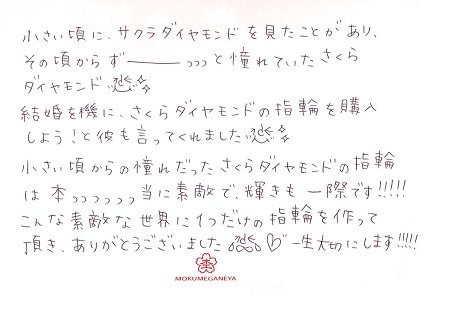 小さい頃に、サクラダイヤモンドを見たことがあり、
その頃からずーーーっっっと憧れていたさくら
ダイヤモンド
結婚を機に、さくらダイヤモンドの指輪を購入
しよう!と彼も言ってくれました
小さい頃からの憧れだったさくらダイヤモンドの指輪
は本っっっっっっ当に素敵で、輝きも一際です!!!!!
こんな素敵な世界に1つだけの指輪を作って
頂き、ありがとうございました♡一生大切にします!!!!!
MOKUMEGANEYA